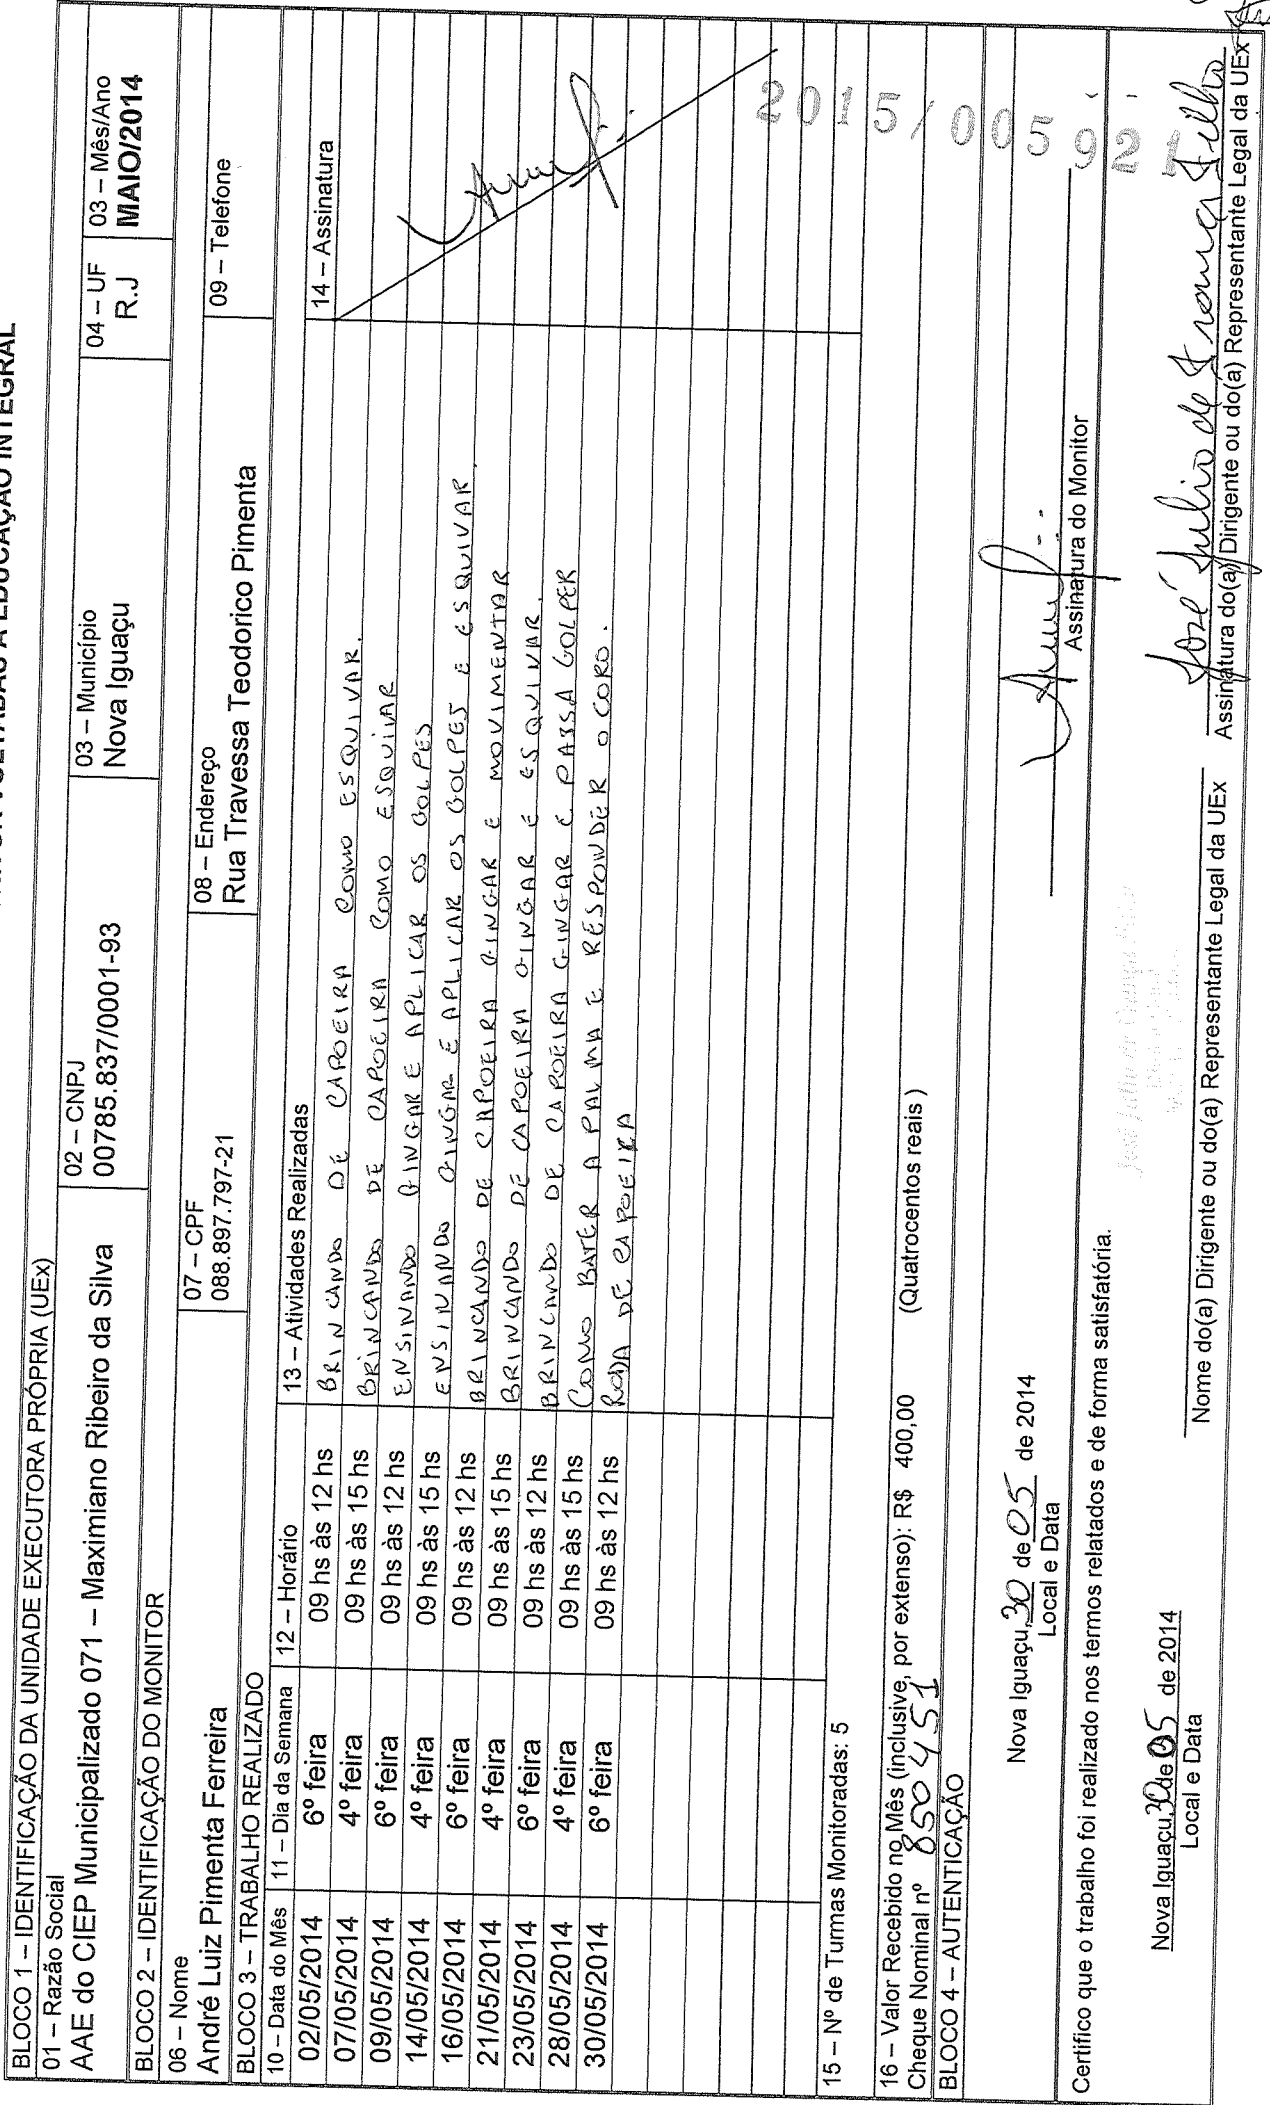 BLOCO 1 – IDENTIFICAÇÃO DA UNIDADE EXECUTORA PRÓPRIA (UEx)
01 – Razão Social 02 – CNPJ 03 – Município 04 – UF 03 – Mês/Ano
AAE do CIEP Municipalizado 071 – Maximiano Ribeiro da Silva 00785.837/0001-93 Nova Iguaçu R.J MAIO/2014
BLOCO 2 – IDENTIFICAÇÃO DO MONITOR
06 – Nome 07 – CPF 08 – Endereço 09 – Telefone
André Luiz Pimenta Ferreira 088.897.797-21 Rua Travessa Teodorico Pimenta
BLOCO 3 – TRABALHO REALIZADO
10 – Data do Mês 11 – Dia da Semana 12 – Horário 13 – Atividades Realizadas 14 – Assinatura
02/05/2014 6º feira 09 hs às 12 hs BRINCANDO DE CAPOEIRA COMO ESQUIVAR.
07/05/2014 4º feira 09 hs às 15 hs BRINCANDO DE CAPOEIRA COMO ESQUIVAR
09/05/2014 6º feira 09 hs às 12 hs ENSINANDO GINGAR E APLICAR OS GOLPES
14/05/2014 4º feira 09 hs às 15 hs ENSINANDO GINGAR E APLICAR OS GOLPES E ESQUIVAR.
16/05/2014 6º feira 09 hs às 12 hs BRINCANDO DE CAPOEIRA GINGAR E MOVIMENTAR
21/05/2014 4º feira 09 hs às 15 hs BRINCANDO DE CAPOEIRA GINGAR E ESQUIVAR.
23/05/2014 6º feira 09 hs às 12 hs BRINCANDO DE CAPOEIRA GINGAR E PASSA GOLPER
28/05/2014 4º feira 09 hs às 15 hs COMO BATER A PALMA E RESPONDER O CORO.
30/05/2014 6º feira 09 hs às 12 hs RODA DE CAPOEIRA
2015/005921
15 – Nº de Turmas Monitoradas: 5
16 – Valor Recebido no Mês (inclusive, por extenso): R$ 400,00 (Quatrocentos reais )
Cheque Nominal nº 850451
BLOCO 4 – AUTENTICAÇÃO
Nova Iguaçu, 30 de 05 de 2014
Local e Data Assinatura do Monitor
Certifico que o trabalho foi realizado nos termos relatados e de forma satisfatória.
Nova Iguaçu, 30 de 05 de 2014 José Julio de França Filho
Local e Data Nome do(a) Dirigente ou do(a) Representante Legal da UEx Assinatura do(a) Dirigente ou do(a) Representante Legal da UEx